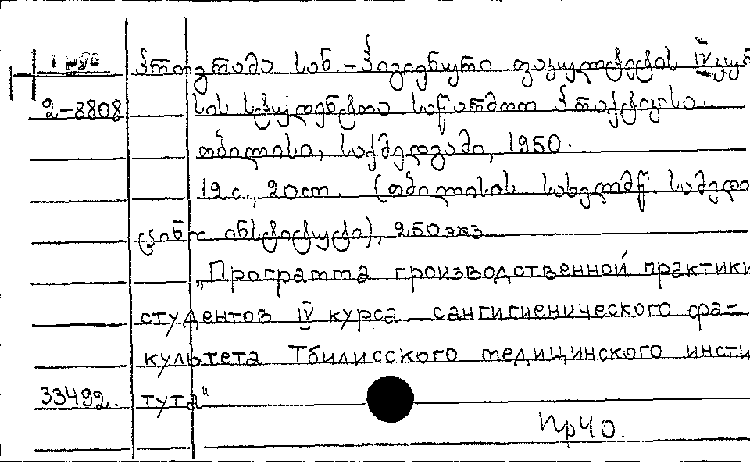 პროგრამა სან.-ჰიგიენური ფაკულტეტის IV კურ
2-3808 სის სტუდენტთა საწარმოო პრაქტიკისა.
თბილისი, საქმედგამი, 1950.
12 с., 20 см. (თბილისის სახელმწ. სამედი
ცინო ინსტიტუტი), 250 экз.
„Программа производственной практики
студентов IV курса сангигиенического фа-
культета Тбилисского медицинского инсти
33492. тута"
Пр40.